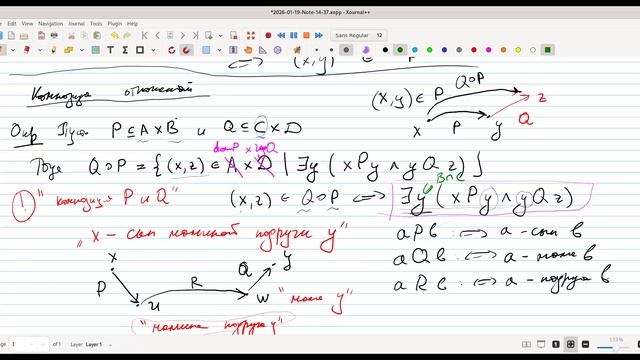 *2026-01-19-Note-14-37.xopp - Xournal++
File Edit View Navigation Journal Tools Plugin Help
Sans Regular 12
⟺ (x,y) ∈ P
Композиция отношений
(x,y) ∈ P Q∘P
x P y Q z
Опр Пусть P ⊆ A×B и Q ⊆ C×D
dom P × rng Q
Тогда Q∘P = {(x,z) ∈ A×D | ∃y (xPy ∧ yQz)}
! "композиция P и Q" (x,z) ∈ Q∘P ⟺ ∃y (xPy ∧ yQz)
B∩C
"x – сын мамы подруги y"
aPb :⟺ a – сын b
x P R Q y
aQb ⟺ a – мама b
u w "мама y"
aRb :⟺ a – подруга b
"мамина подруга y"
Page 1 of 1 Layer Layer 1 133%